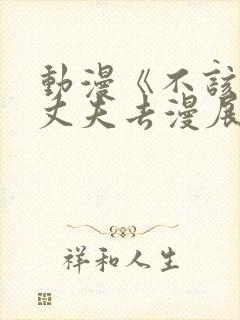 動漫《不該
丈夫去漫展
祥和人生